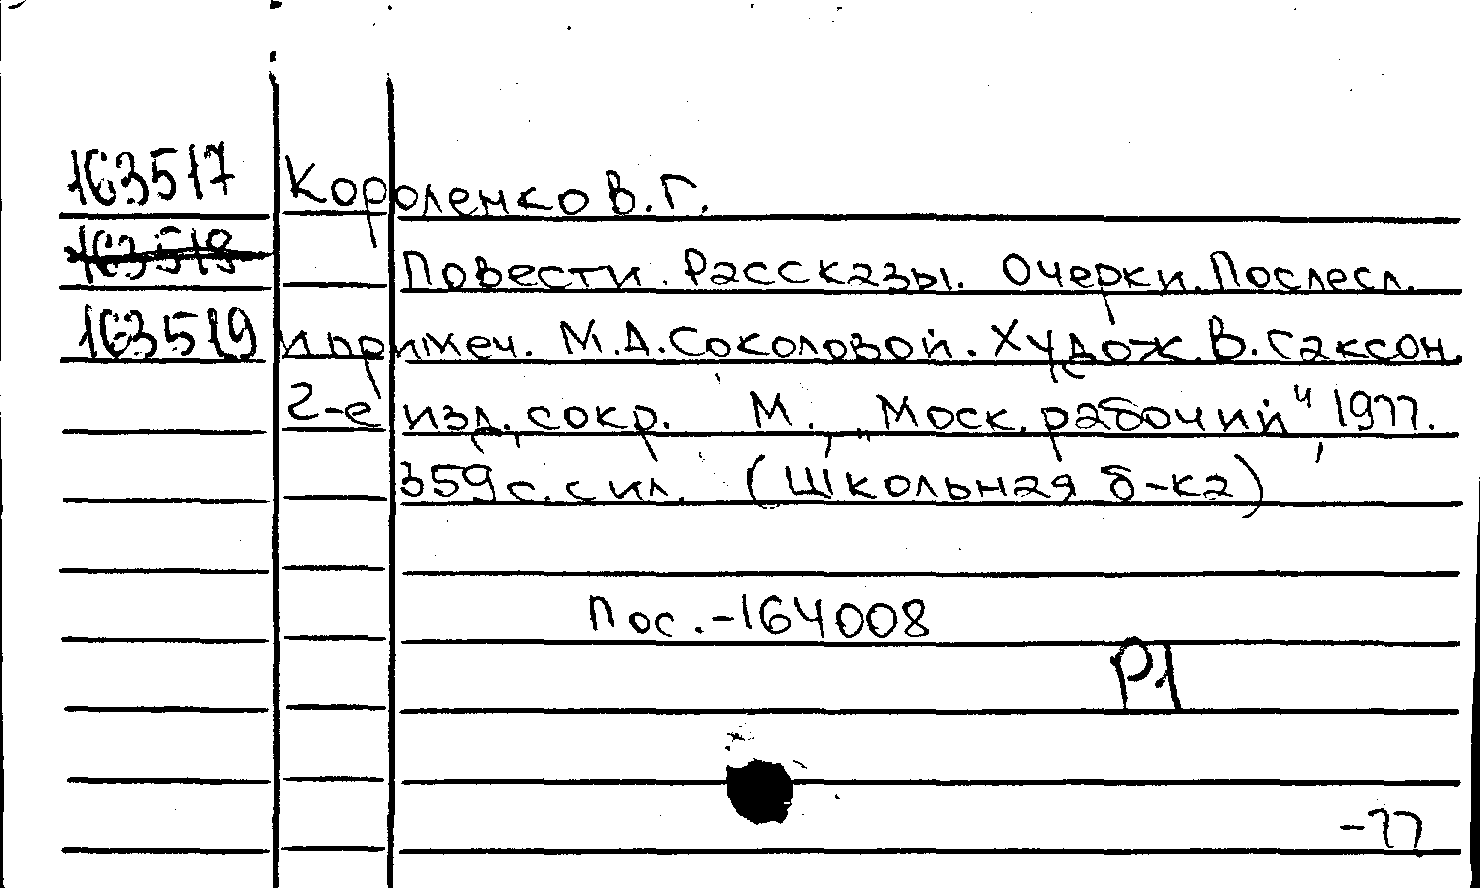 163517 Короленко В.Г.
163518 Повести. Рассказы. Очерки. Послесл.
163519 и примеч. М.А.Соколовой. Худож. В. Саксон.
2-е изд., сокр. М., „Моск. рабочий" 1977.
359 с. с ил. (Школьная б-ка)
Пос.-164008
Р1
-77